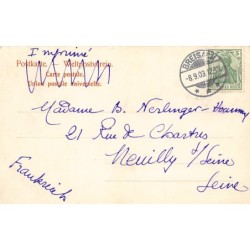 Imprimé
Postkarte. — Weltpostverein.
Carte postale.
Union postale universelle.
BREISACH
-8.9.03
Madame B. Nerlinger-
21 Rue de Chartres
Neuilly s/Seine
Seine
Frankreich